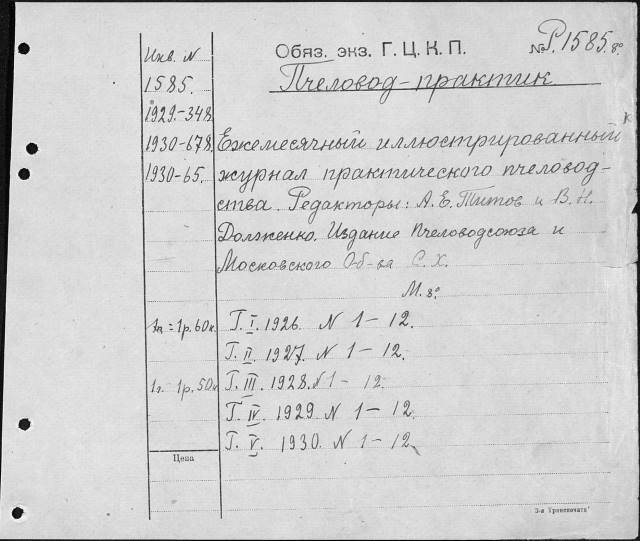 Обяз. экз. Г.Ц.К.П.
№ Р.1585. 8º
Пчеловод-практик
Инв. N
1585.
1929.-348
1930-678.
1930-65.
Ежемесячный иллюстрированный
журнал практического пчеловод-
ства. Редакторы: А.Е. Титов и В.Н.
Долженко. Издание Пчеловодсоюза и
Московского Об-ва С.Х.
М. 8º
= 1р. 60к.
Г. I. 1926. N 1-12.
Г. II. 1927. N 1-12.
1г. 1р. 50к
Г. III. 1928. N 1-12.
Г. IV. 1929 N 1-12.
Г. V. 1930. N 1-12.
Цена
3-я "Транспечати"